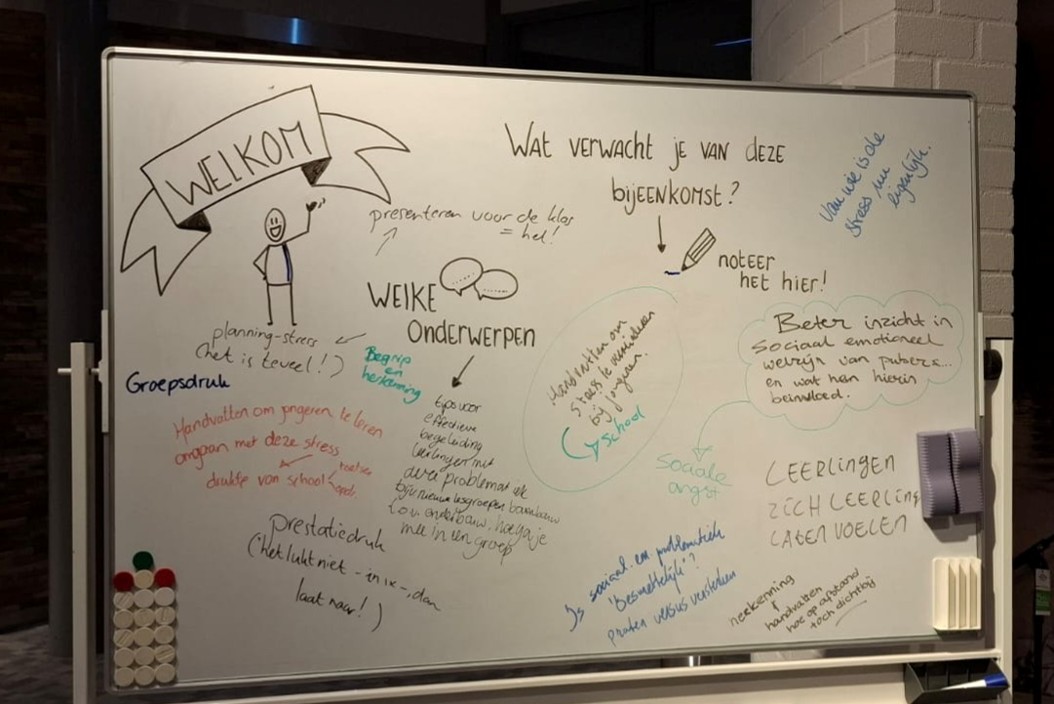 WELKOM
WAT VERWACHT JE VAN DEZE
BIJEENKOMST?
noteer
het hier!
Van wie is die
stress nu
eigenlijk.
presenteren voor de klas
= hel!
WELKE
ONDERWERPEN
planning-stress
(het is teveel!)
Groepsdruk
Begrip
en
herkenning
Handvatten om jongeren te leren
omgaan met deze stress
drukte van school
toetsen
tips voor
effectieve
begeleiding
leerlingen met
deze problematiek
bij nieuwe lesgroepen bovenbouw
onderbouw, hoe ga je
mee in een groep
prestatiedruk
(het lukt niet - in 1x -, dan
laat maar!)
Handvatten om
stress te verminderen
bij jongeren.
School
Beter inzicht in
sociaal emotioneel
welzijn van pubers...
en wat hen hierin
beïnvloed.
sociale
angst
LEERLINGEN
ZICH LEERLING
LATEN VOELEN
Is sociaal. em. problematiek
'Besmettelijk'?
praten versus versterken
herkenning
handvatten
hoe op afstand
toch dichtbij